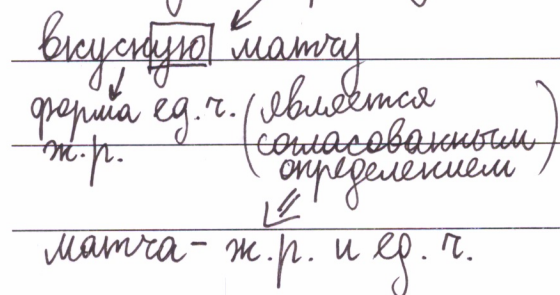 вкусную матчу
форма ед.ч. (является
ж.р. согласованным
определением)
матча - ж.р. и ед.ч.